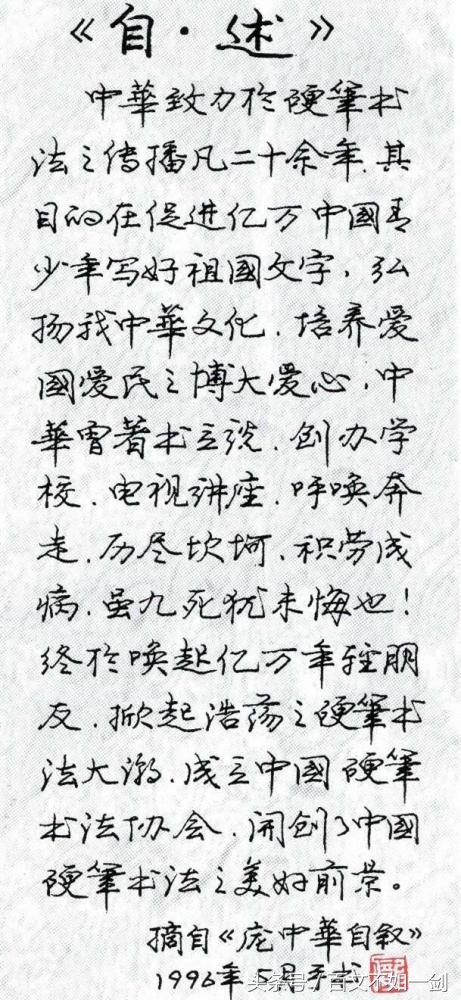 《自·述》
中華致力於硬筆书
法之传播凡二十余年.其
目的在促进亿万中國青
少年写好祖國文字,弘
扬我中華文化.培养爱
國爱民之博大爱心,中
華曾著书立说.创办学
校.电视讲座.呼唤奔
走.历尽坎坷.积劳成
病.虽九死犹未悔也!
终於唤起亿万年轻朋
友.掀起浩荡之硬筆书
法大潮.成立中國硬筆
书法协会.開创了中國
硬筆书法之美好前景。
摘自《庞中華自叙》
1996年5月手书
头条号/百文不如一剑